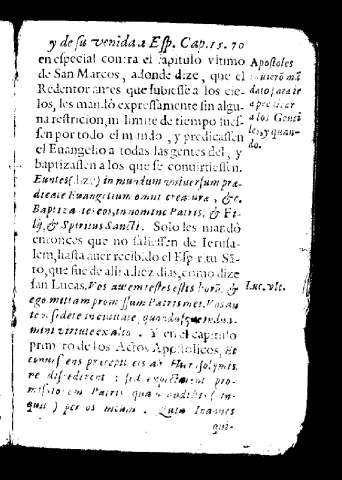 y de su venida a Esp. Cap. 15. 70
en especial contra el capitulo vltimo
de San Marcos, adonde dize, que el
Redentor antes que subiesse a los cie-
los, les mandò expressamente sin algu-
na restricion, ni limite de tiempo fues-
sen por todo el mundo, y predicassen
el Euangelio a todas las gentes del, y
baptizassen a los que se conuirtiessen.
Euntes (dize) in mundum vniuersum præ-
dicate Euangelium omni creatura, &c.
Baptizantes eos, in nomine Patris, & Fi-
lij, & Spiritus Sancti. Solo les mandò
entonces que no saliessen de Ierusa-
lem, hasta auer recibido el Espiritu Sã-
to, que fue de alli a diez dias, como dize
san Lucas, Vos autem testes estis horũ, &
ego mittam promissum Patris mei. Vos au
tẽ sidere in ciuitate, quandusque indua-
mini virtute ex alto. Y en el capitulo
primero de los Actos Apostolicos, Et
conuescens præcepit eis ab Hierosolymis,
ne discederent: sed expectarent pro-
missionem Patris quam audistis (in-
quit) per os meum. Quia Ioannes
qui-
Apostoles
tuuierõ mã
dato para ir
a predicar
a los Genti
les, y quan-
do.
Luc. vlt.